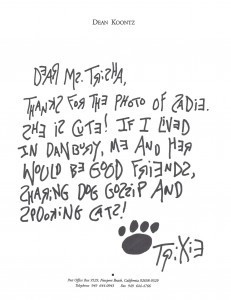 DEAN KOONTZ
DEAR MS. TRISHA,
THANKS FOR THE PHOTO OF SADIE.
SHE IS CUTE! IF I LIVED
IN DANBURY, ME AND HER
WOULD BE GOOD FRIENDS,
SHARING DOG GOSSIP AND
SPOOKING CATS!
TRIXIE
Post Office Box 9529, Newport Beach, California 92658-9529